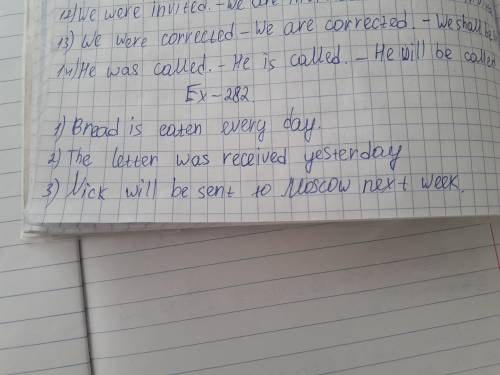 12) We were invited. - We are
13) We were corrected - We are corrected. - We shall be
14) He was called. - He is called. - He will be called
Ex - 282.
1) Bread is eaten every day.
2) The letter was received yesterday
3) Nick will be sent to Moscow next week.